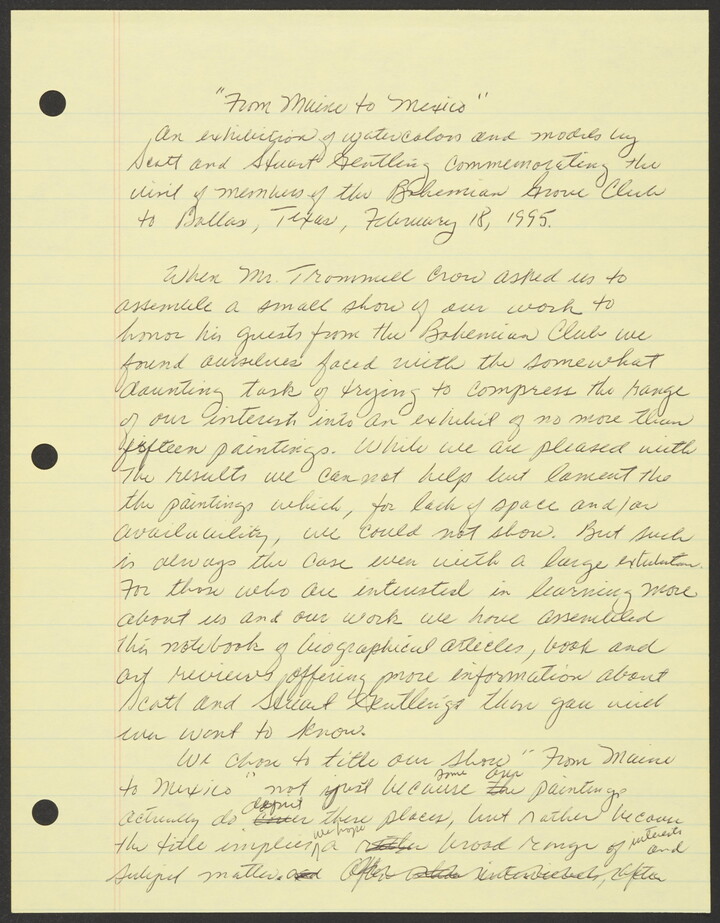 "From Maine to Mexico"
An exhibition of watercolors and models by
Scott and Stuart Gentling commemorating the
visit of members of the Bohemian Grove Club
to Dallas, Texas, February 18, 1995.
When Mr. Trammell Crow asked us to
assemble a small show of our work to
honor his guests from the Bohemian Club we
found ourselves faced with the somewhat
daunting task of trying to compress the range
of our interests into an exhibit of no more than
fifteen paintings. While we are pleased with
the results we can not help but lament the
the paintings which, for lack of space and/or
availability, we could not show. But such
is always the case even with a large exhibition.
For those who are interested in learning more
about us and our work we have assembled
this notebook of biographical articles, book and
art reviews offering more information about
Scott and Stuart Gentlings than you will
ever want to know.
We chose to title our show "From Maine
to Mexico" not just because some our the paintings
actually do depict cover these places, but rather because
the title implies, we hope, a rather broad range of interests and
subject matter. and Often when interviewed, after